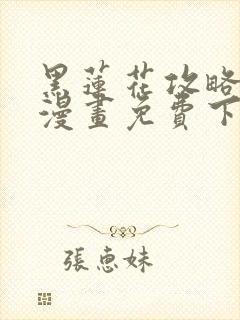 黑蓮花攻略
漫畫免費下
張惠妹